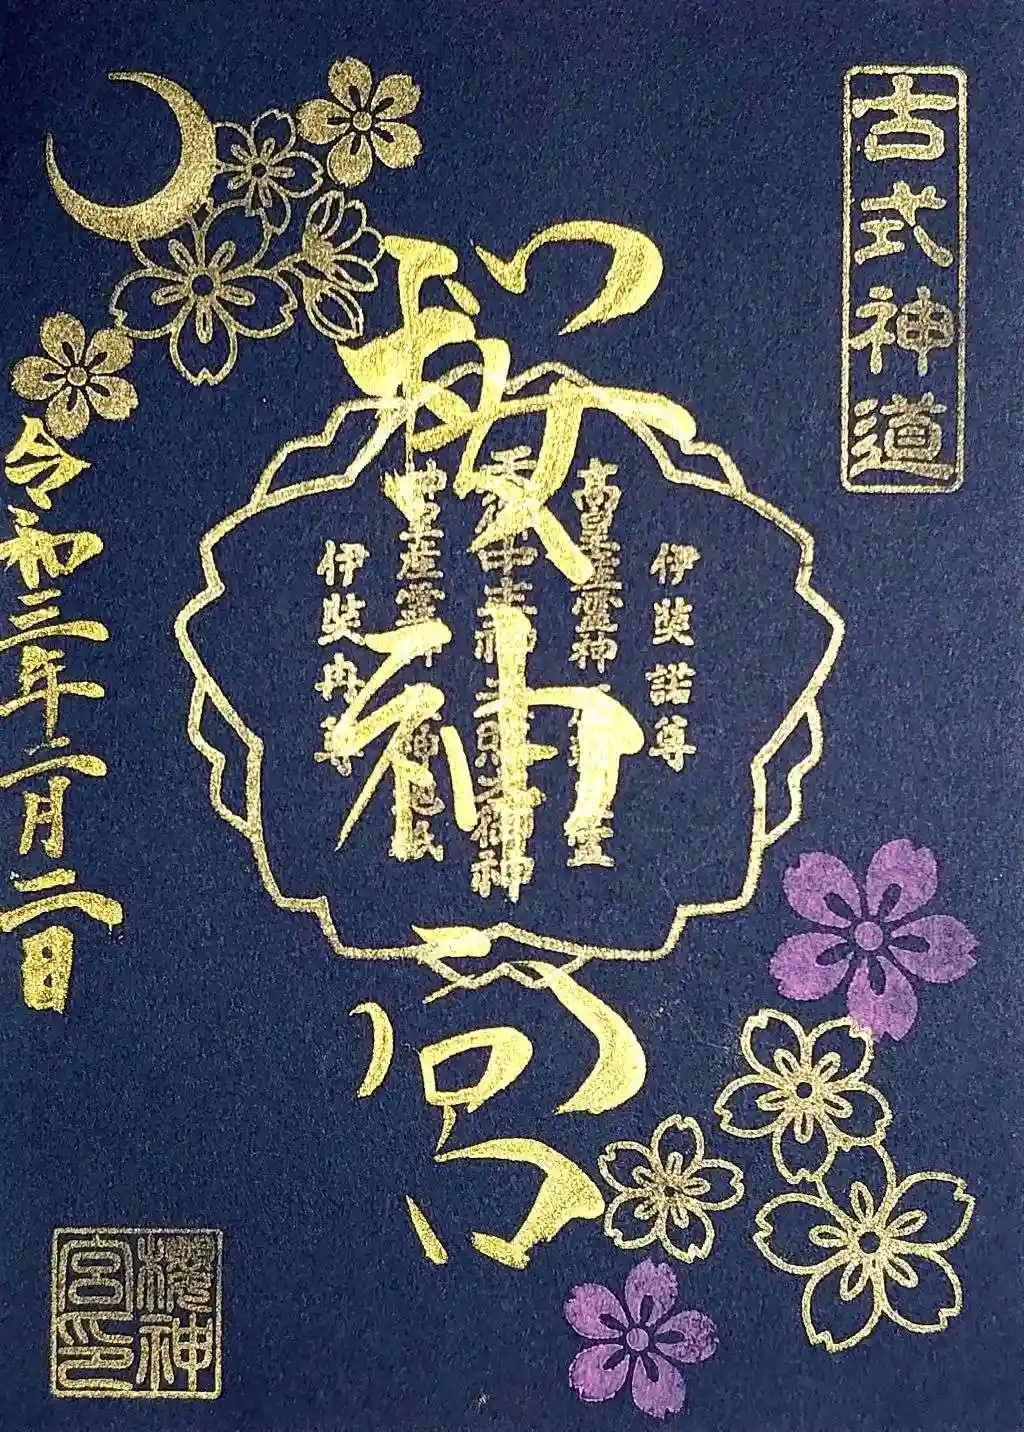 古式神道
桜神宮
伊弉諾尊
高皇産靈神
天御中主神
神皇産靈神
伊弉冉尊
令和三年二月二日
櫻神宮印